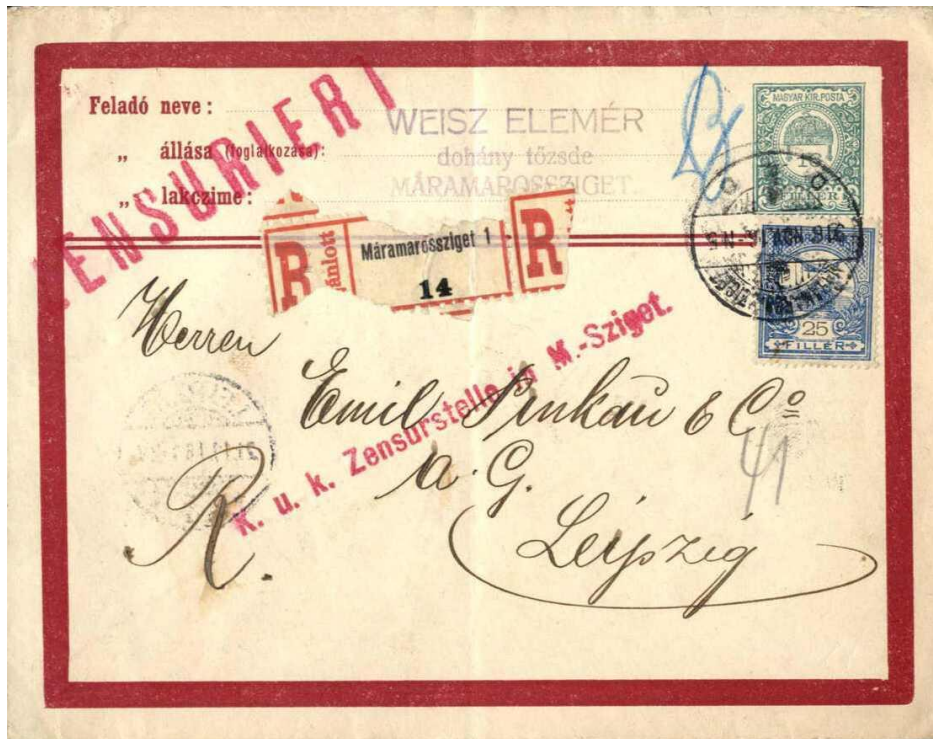 Feladó neve:
„ állása (foglalkozása):
„ lakczime:
WEISZ ELEMÉR
dohány tőzsde
MÁRAMAROSSZIGET
ZENSURIERT
MAGYAR KIR. POSTA
916 NOV
25
FILLÉR
R
ajánlott
Máramarossziget 1
14
R
Herren
Emil Pinkau & Co
A. G.
Leipzig
R.
K. u. k. Zensurstelle in M.-Sziget.
41